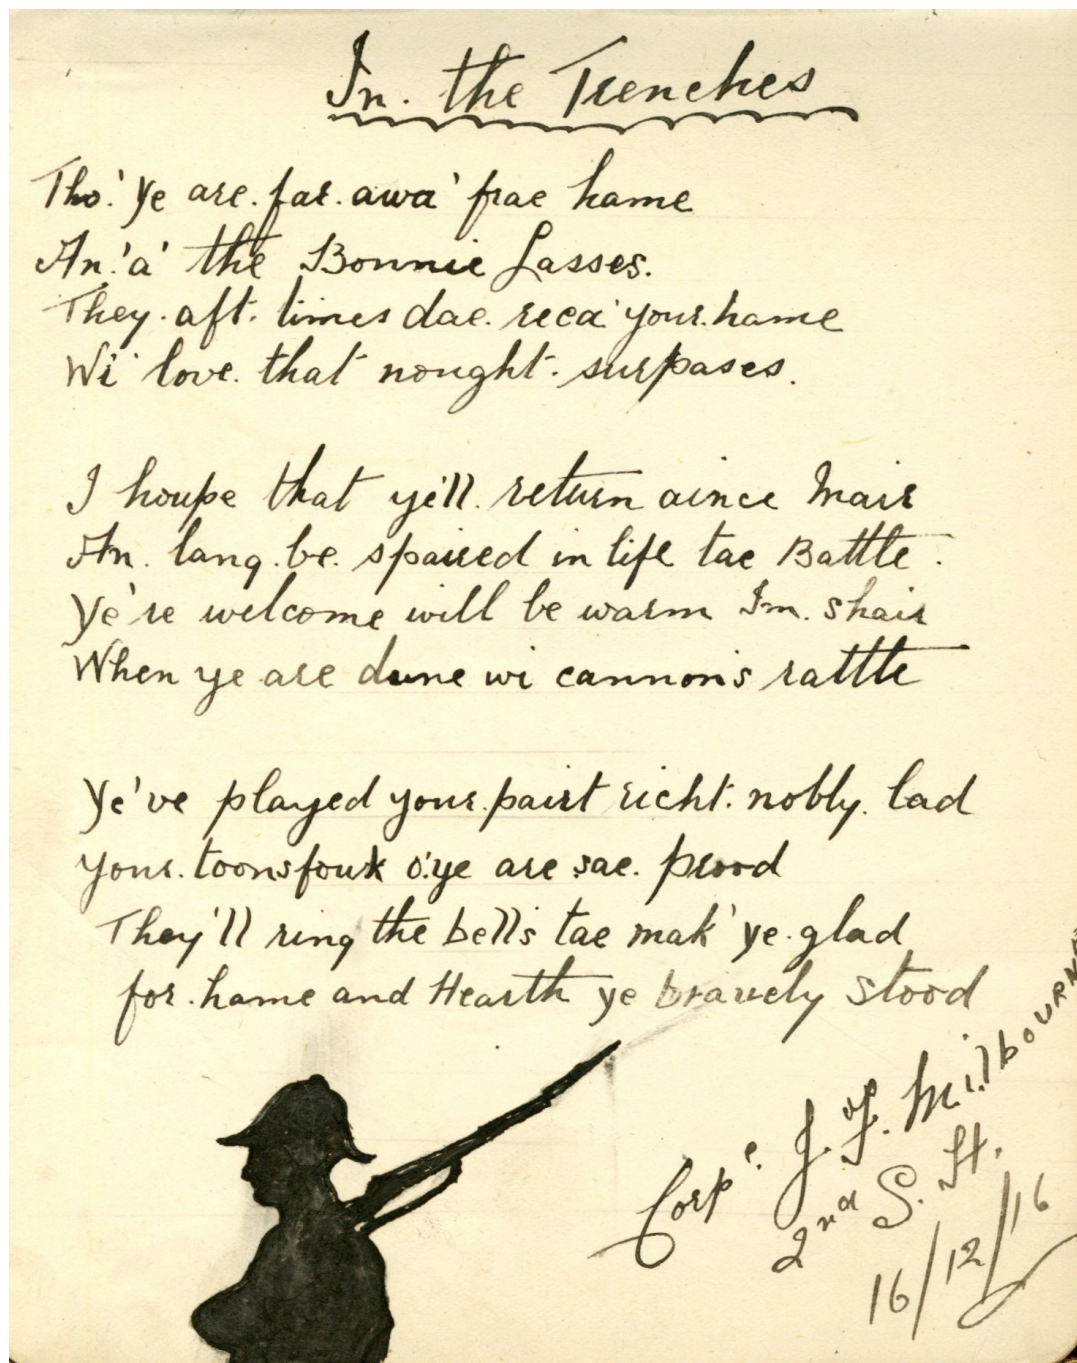 In. the Trenches
Tho' ye are. far. awa' frae hame
An.' a' the Bonnie Lasses.
They. aft. times dae. reca' your. hame
Wi' love. that nought. surpases.
I houpe that ye'll. return aince mair
An. lang. be. spaired in life tae Battle.
Ye're welcome will be warm Im. shair
When ye are dune wi cannon's rattle
Ye've played your. pairt richt. nobly. lad
your. toonsfouk o' ye are sae. prood
They'll ring the bell's tae mak' ye. glad
for. hame and Hearth ye bravely stood
Corpl. J. F. Milbourne
2nd S. H.
16/12/16